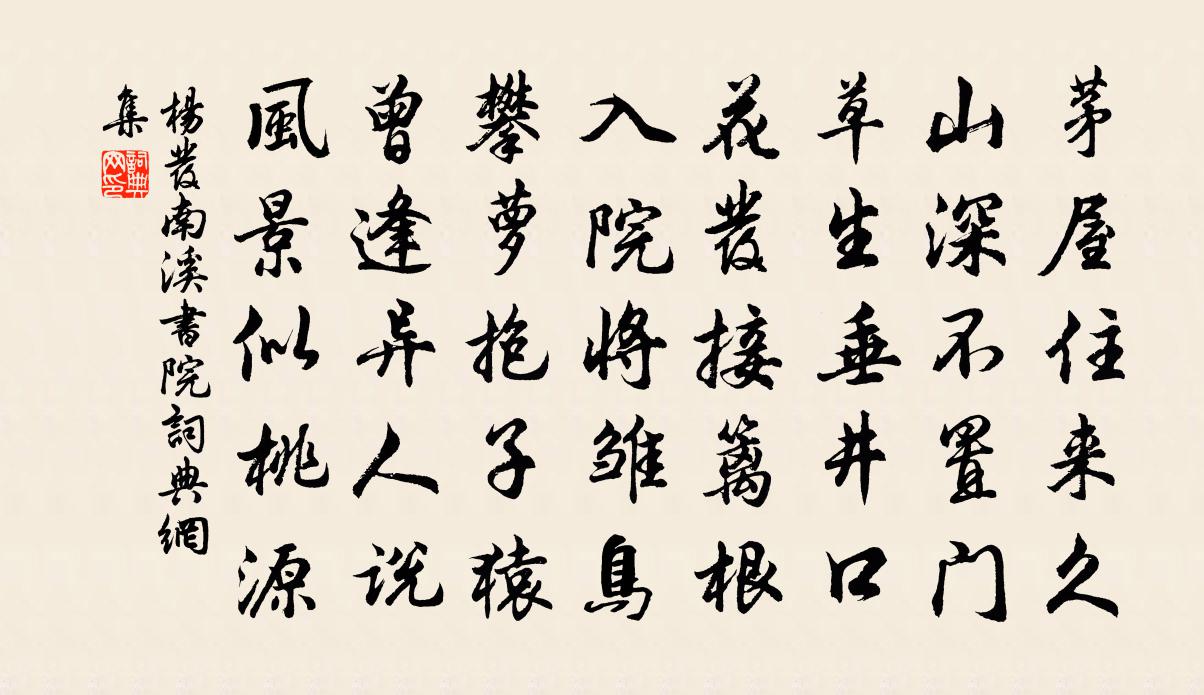 茅屋住来久
山深不置门
草生垂井口
花發接篱根
入院将雏鳥
攀萝抱子猿
曾逢异人说
風景似桃源
楊發南溪書院詞典網
集
詞典网印